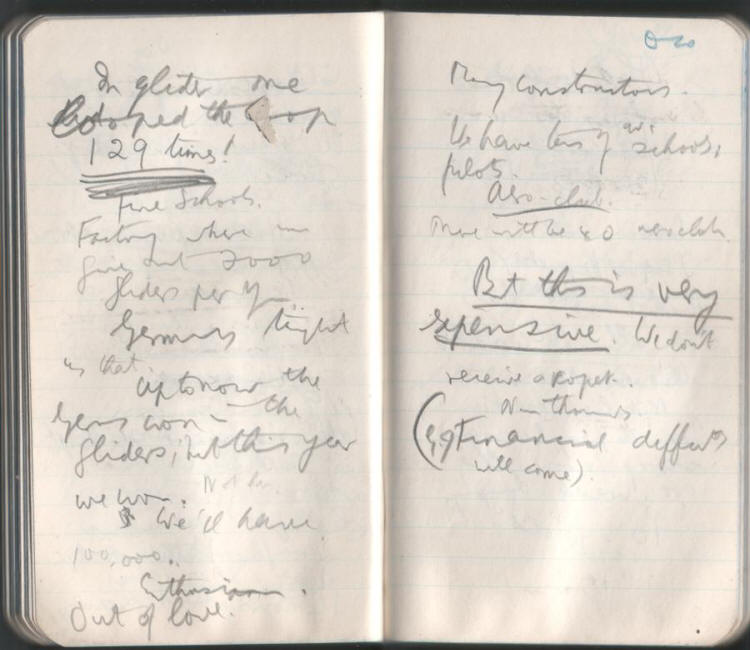 In glider one
looped the loop
129 times!
Five Schools.
Factory where
give out 2000
gliders per
Germany taught
us that.
Up to now the
Germans won the
gliders; but this year
we won.
We'll have
100,000.
Enthusiasm.
Out of love.
Many constructors.
We have tens of av. schools,
pilots.
Aero-club.
There will be 80 aeroclubs.
But this is very
expensive. We don't
receive a kopek.
thousands
Financial
will come).